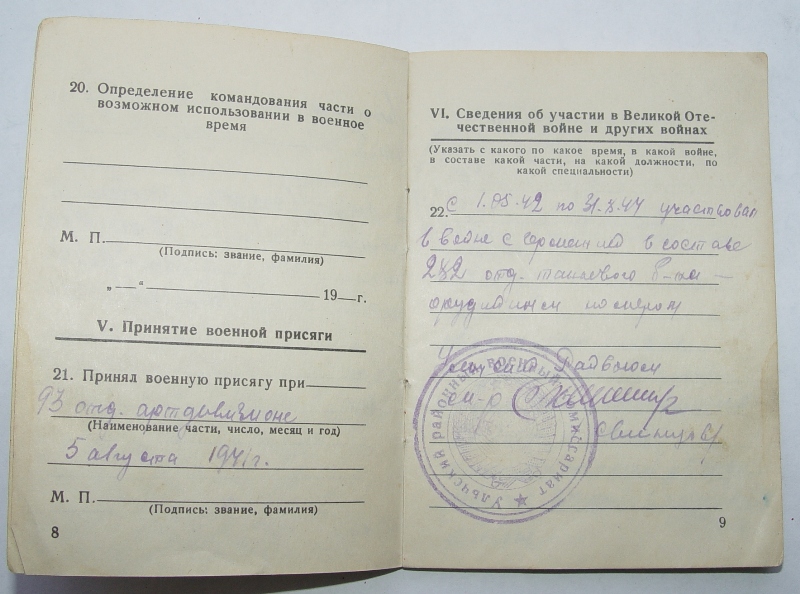 20. Определение командования части о
возможном использовании в военное
время
М. П.
(Подпись: звание, фамилия)
„ — “ 19 — г.
V. Принятие военной присяги
21. Принял военную присягу при
93 отд. артдивизионе
(Наименование части, число, месяц и год)
5 августа 1941 г.
М. П.
(Подпись: звание, фамилия)
8
VI. Сведения об участии в Великой Оте-
чественной войне и других войнах
(Указать с какого по какое время, в какой войне,
в составе какой части, на какой должности, по
какой специальности)
22. С 1.05.42 по участвовал
в войне с Германией в составе
282 отд. танкового б-на –
орудийным номером
Ульчский Райвоенком
Ульчский районный военный комиссариат
9